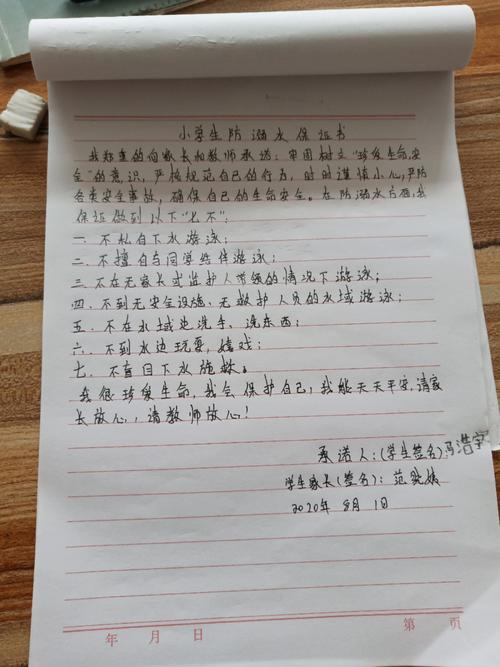 小学生防溺水保证书
我郑重的向家长和教师承诺：牢固树立“珍爱生命，安
全”的意识，严格规范自己的行为，时时谨慎小心，严防
各类安全事故，确保自己的生命安全。在防溺水方面，我
保证做到以下“七不”：
一．不私自下水游泳；
二．不擅自与同学结伴游泳；
三．不在无家长或监护人带领的情况下游泳；
四．不到无安全设施、无救护人员的水域游泳；
五．不在水域边洗手、洗东西；
六．不到水边玩耍，嬉戏；
七．不盲目下水施救。
我很珍爱生命，我会保护自己；我能天天平安，请家
长放心，请教师放心！
承诺人：（学生签名）冯浩宇
学生家长（签名）：范
2020年8月1日
年 月 日 第 页